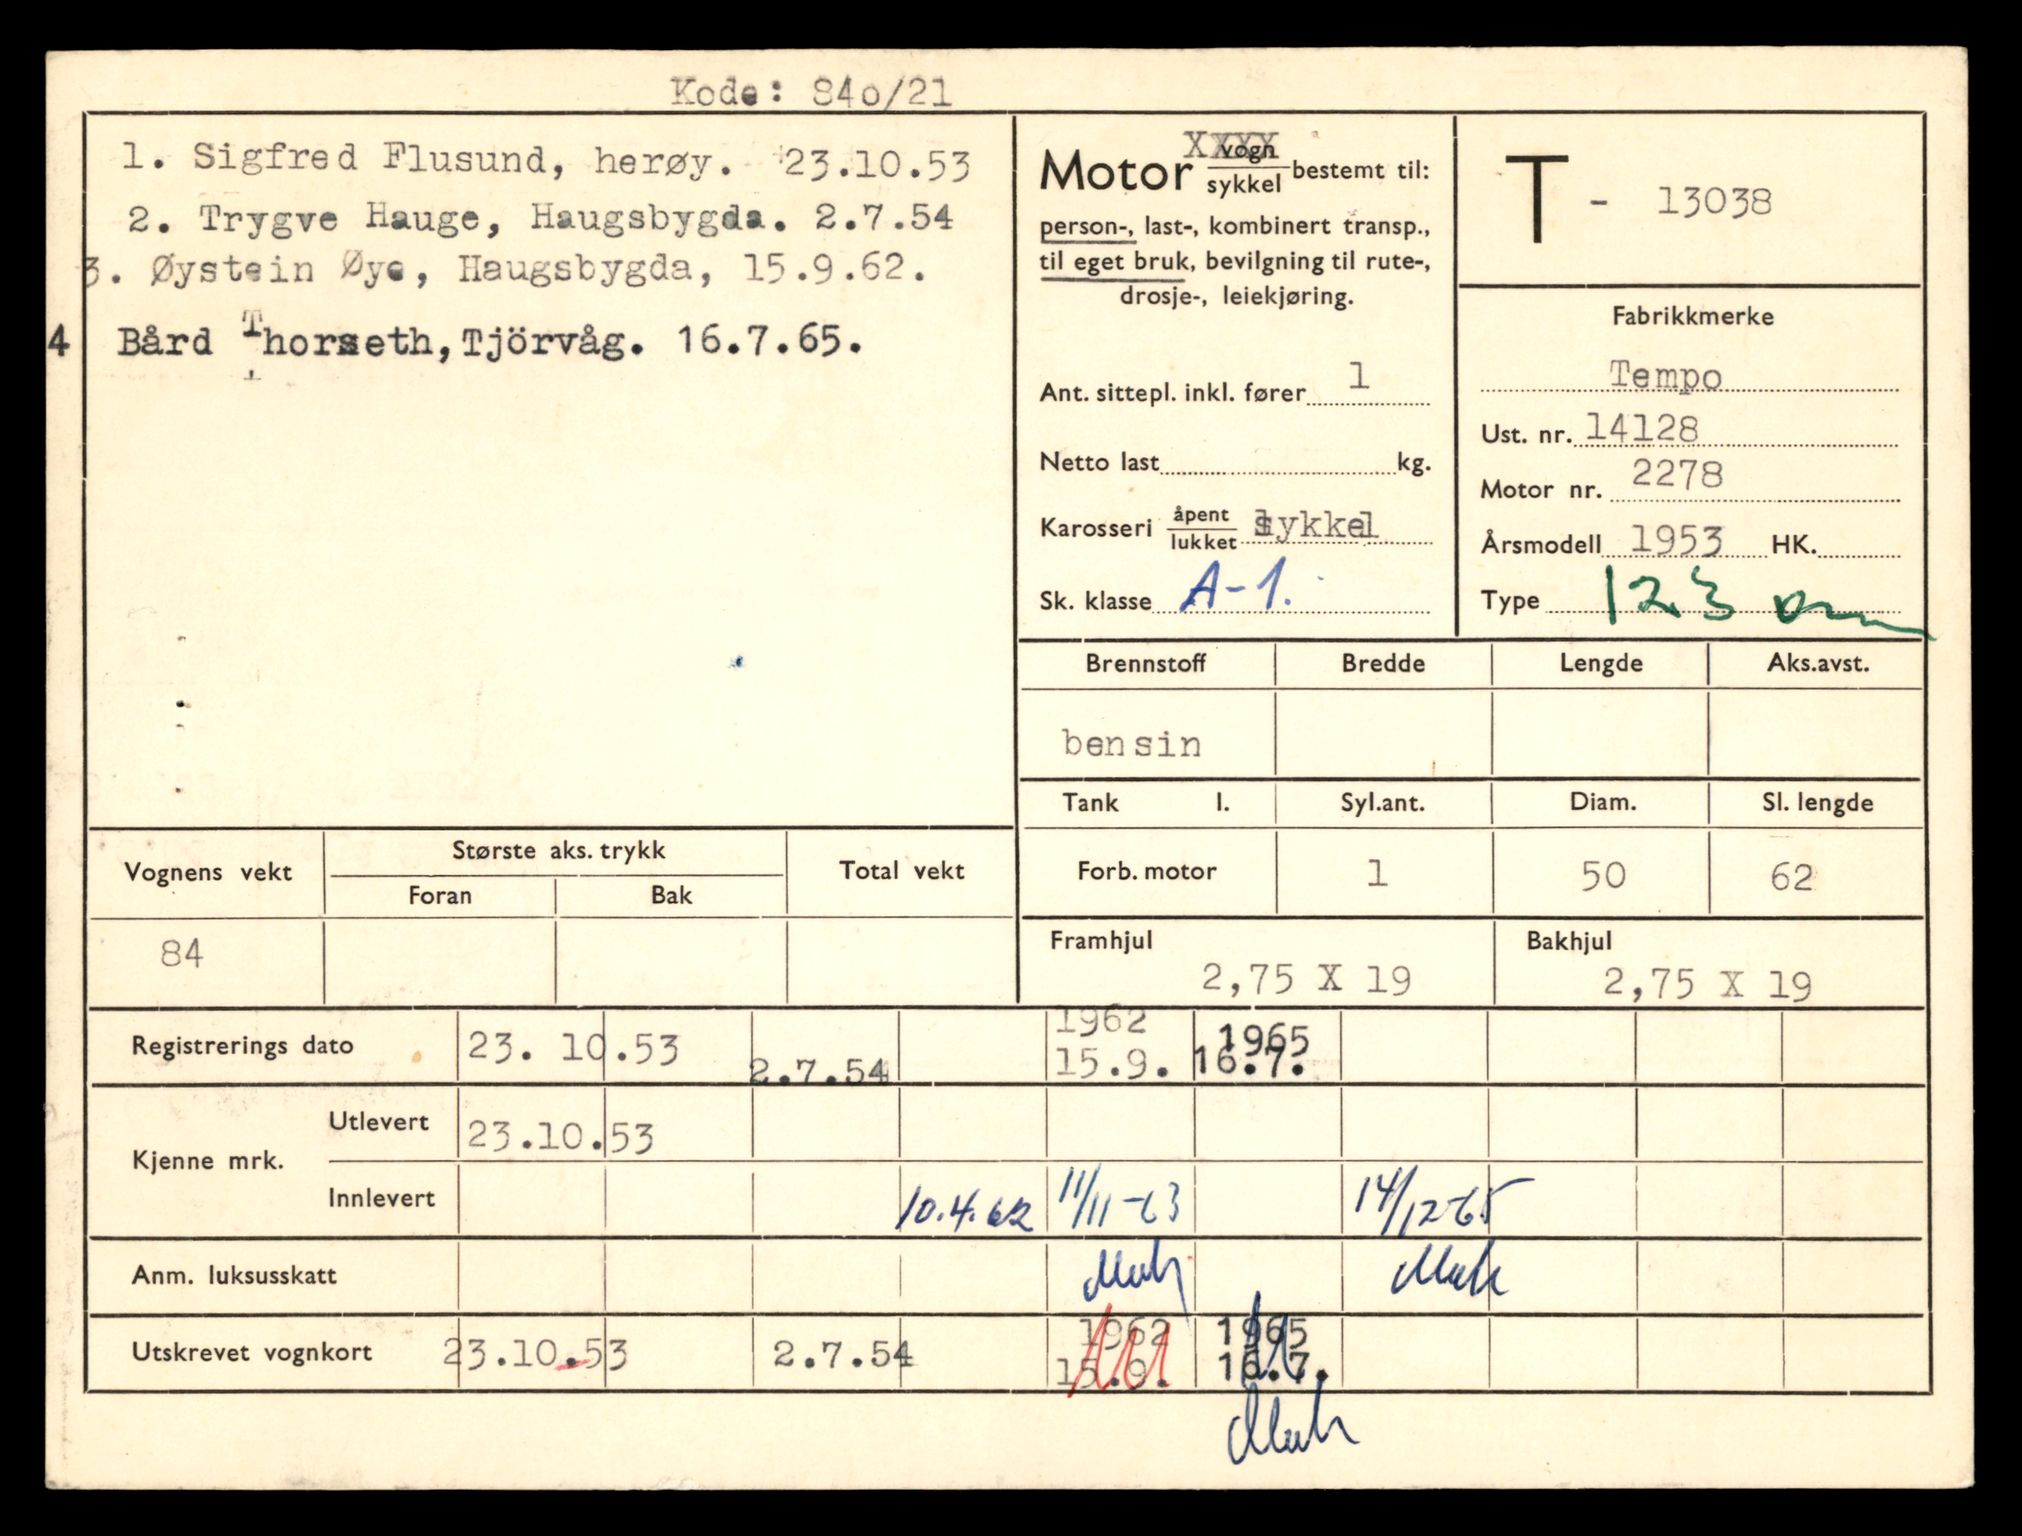 Kode: 84o/21
1. Sigfred Flusund, herøy. 23.10.53
2. Trygve Hauge, Haugsbygda. 2.7.54
3. Øystein Øye, Haugsbygda, 15.9.62.
4 Bård Thorseth, Tjörvåg. 16.7.65.
Motor vogn XXXX
sykkel bestemt til:
person-, last-, kombinert transp.,
til eget bruk, bevilgning til rute-,
drosje-, leiekjøring.
Ant. sittepl. inkl. fører 1
Netto last kg.
Karosseri åpent
lukket sykkel
Sk. klasse A-1.
T - 13038
Fabrikkmerke
Tempo
Ust. nr. 14128
Motor nr. 2278
Årsmodell 1953 HK.
Type 123
Brennstoff Bredde Lengde Aks.avst.
bensin
Tank l. Syl.ant. Diam. Sl. lengde
Forb. motor 1 50 62
Framhjul Bakhjul
2,75 X 19 2,75 X 19
Vognens vekt Største aks. trykk Total vekt
Foran Bak
84
Registrerings dato 23. 10.53 2.7.54 1962 15.9. 1965 16.7.
Kjenne mrk.
Utlevert 23.10.53
Innlevert 10.4.62 11/11-63 14/12-65
Anm. luksusskatt
Utskrevet vognkort 23.10.53 2.7.54 1962 15.9. 1965 16.7.